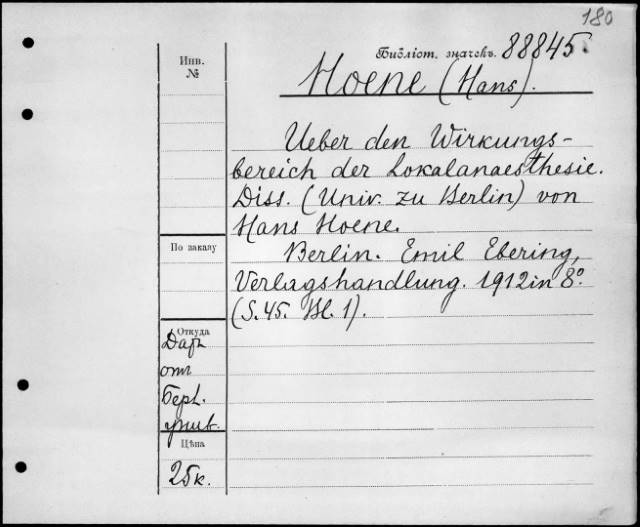 180
Библіот. значекъ. 88845.
Инв.
№
Hoene (Hans).
Ueber den Wirkungs-
bereich der Lokalanaesthesie.
Diss. (Univ. zu Berlin) von
Hans Hoene.
По заказу
Berlin. Emil Ebering,
Verlagshandlung. 1912 in 8º.
(S. 45. Bl. 1).
Откуда
Даръ
отъ
Берл.
унив.
Цѣна
25к.